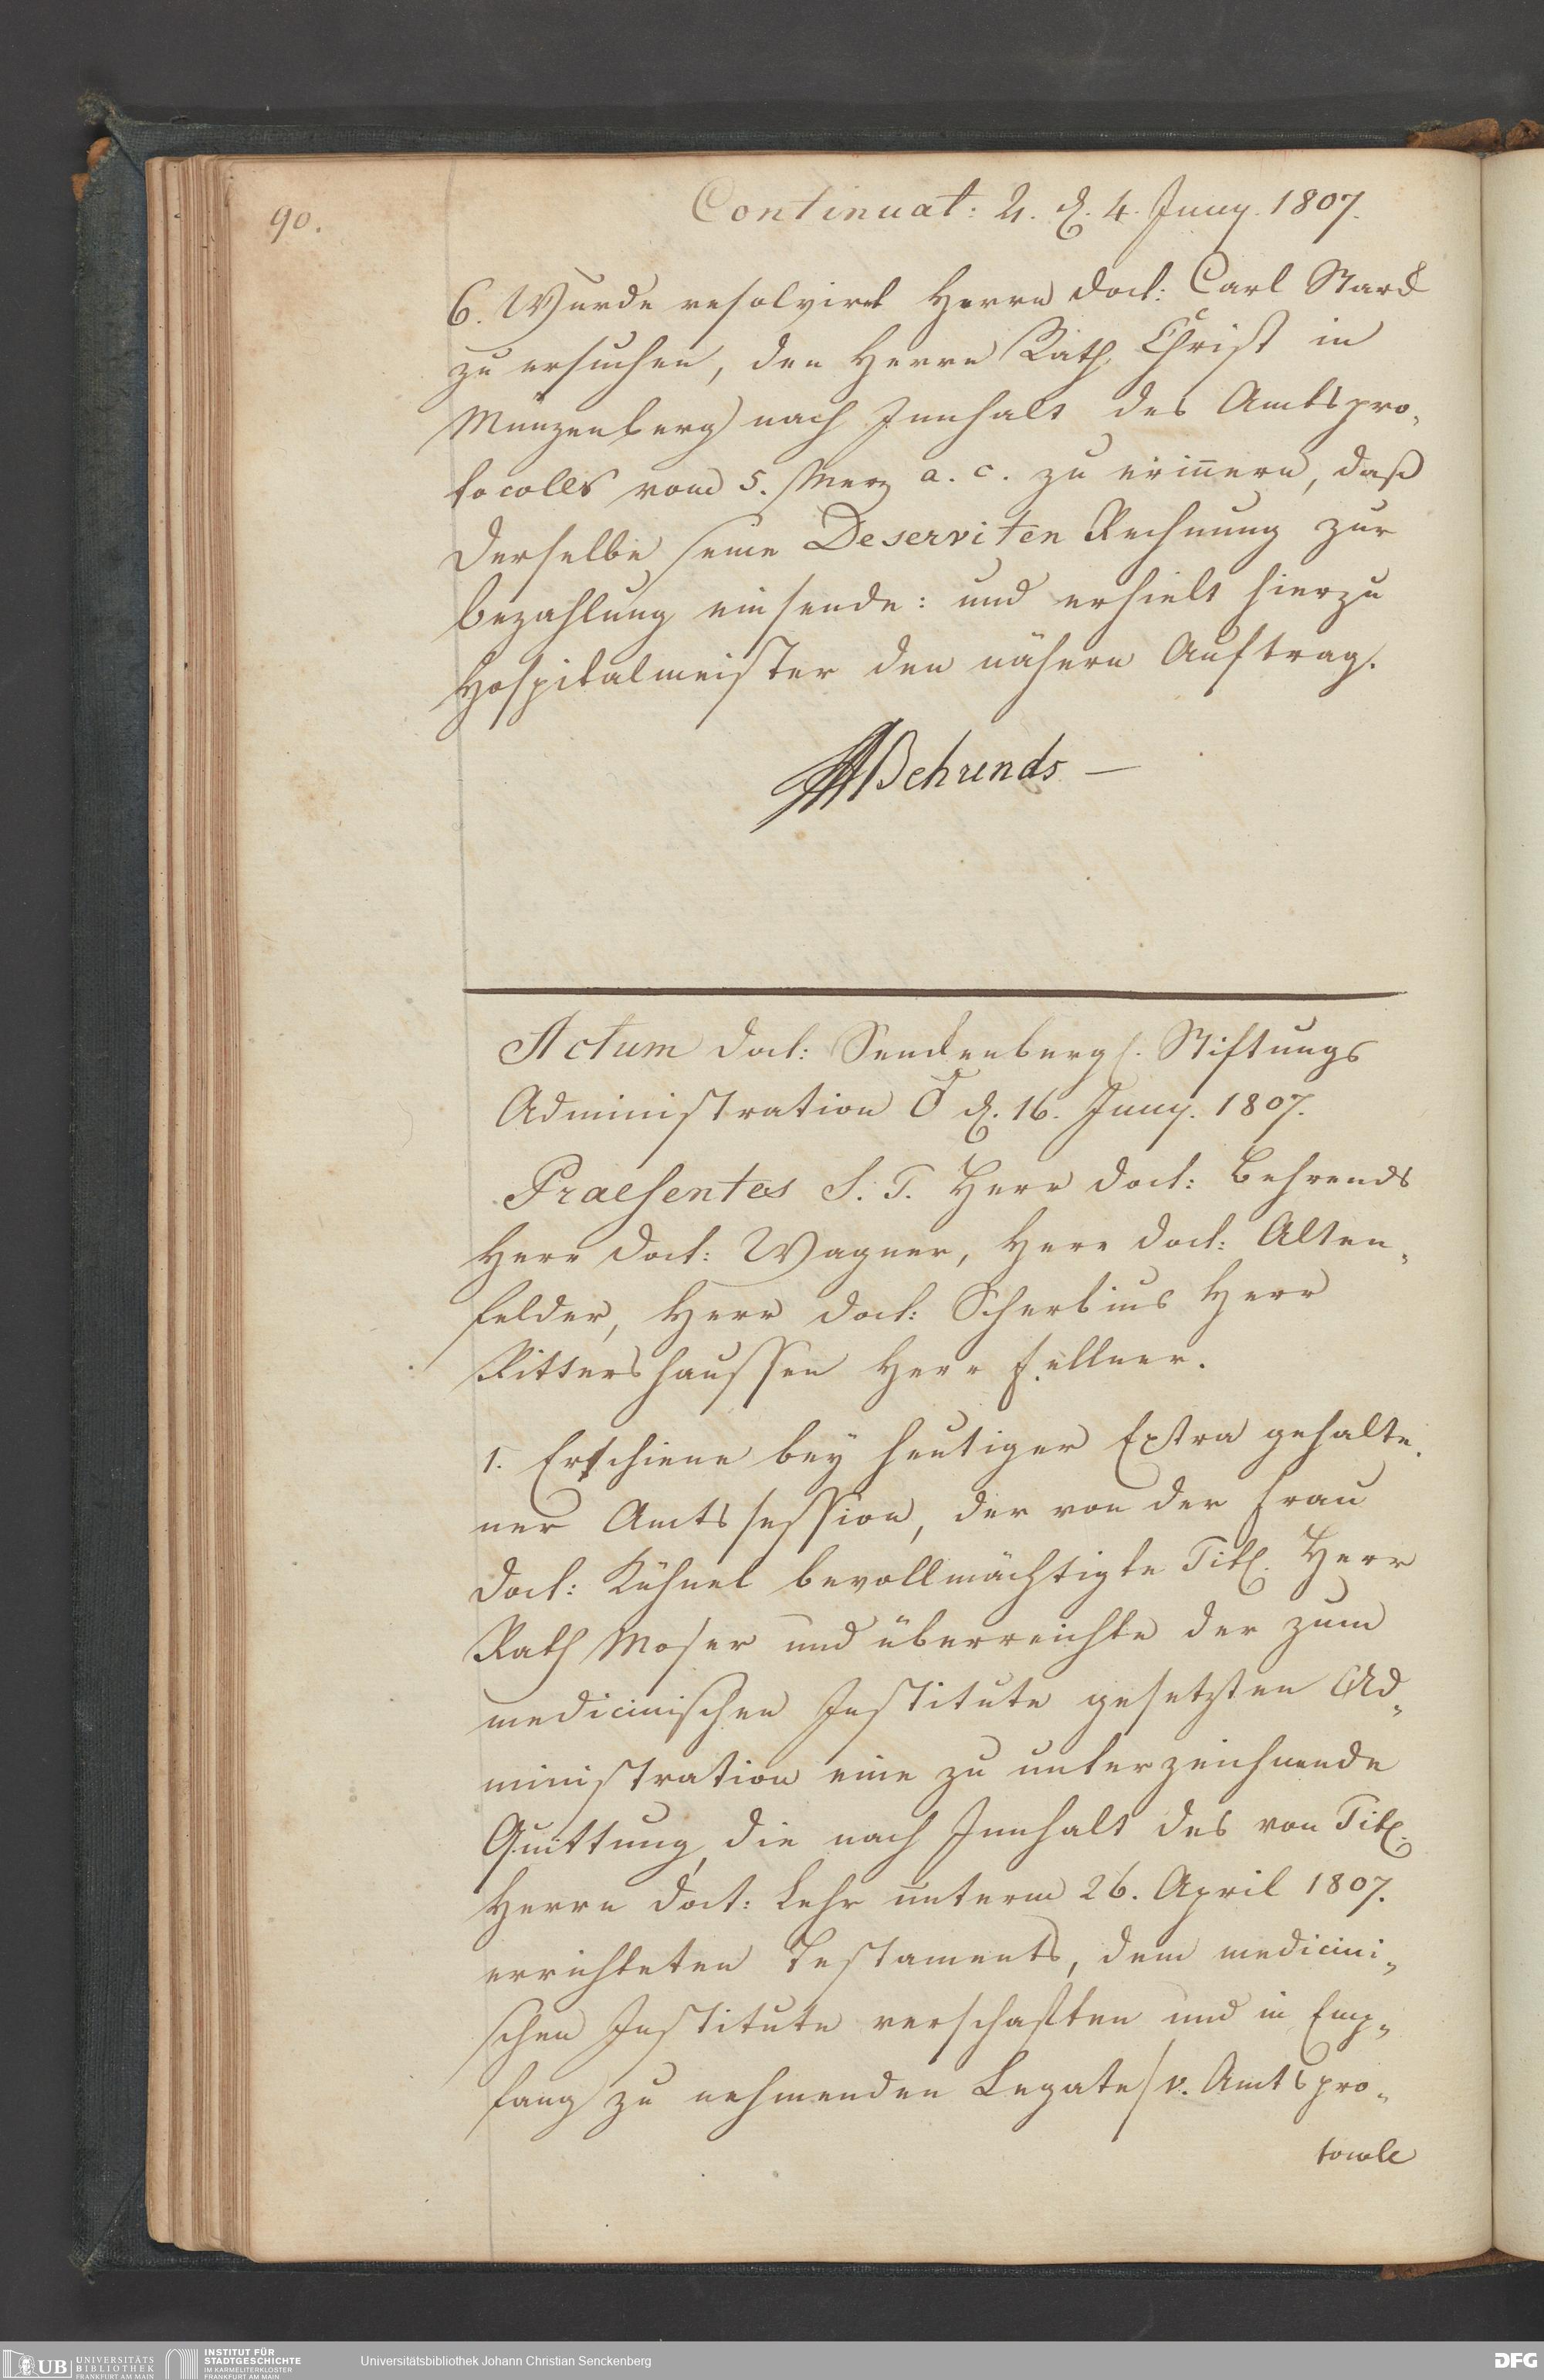 90.
Continuat: ♃. d. 4. Juny. 1807.
6. Wurde resolvirt Herrn Doct: Carl Starck
zu ersuchen, den Herrn Rath Christ in
Münzenberg nach Innhalt des Amtspro„
tocolls vom 5. Merz a. c. zu erinnern, daß
derselbe seine Deserviten Rechnung zur
bezahlung einsende: und erhielt hierzu
Hospitalmeister den nähern Auftrag.
Behrends
Actum Doct: Senckenbergl. Stiftungs
Administration ♂ d. 16. Juny. 1807.
Praesentes S. T. Herr Doct: Behrends
Herr Doct: Wagner, Herr Doct: Alten„
felder, Herr Doct: Scherbius Herr
Rittershaussen Herr Fellner.
1. Erschiene bey heutiger Extra gehalte„
ner Amtssession, der von der Frau
Doct: Kühnel bevollmächtigte Titl. Herr
Rath Moser und überreichte der zum
medicinischen Institute gesetzten Ad„
ministration eine zu unterzeichnende
Quittung, die nach Innhalt des von Titl.
Herrn Doct: Lehr unterm 26. April 1807.
errichteten Testaments, dem medicini„
schen Institute verschafften und in Emp„
fang zu nehmenden Legate/ v. Amtspro„
tocolle
UB UNIVERSITÄTS
BIBLIOTHEK
FRANKFURT AM MAIN
INSTITUT FÜR
STADTGESCHICHTE
IM KARMELITERKLOSTER
FRANKFURT AM MAIN
Universitätsbibliothek Johann Christian Senckenberg
DFG